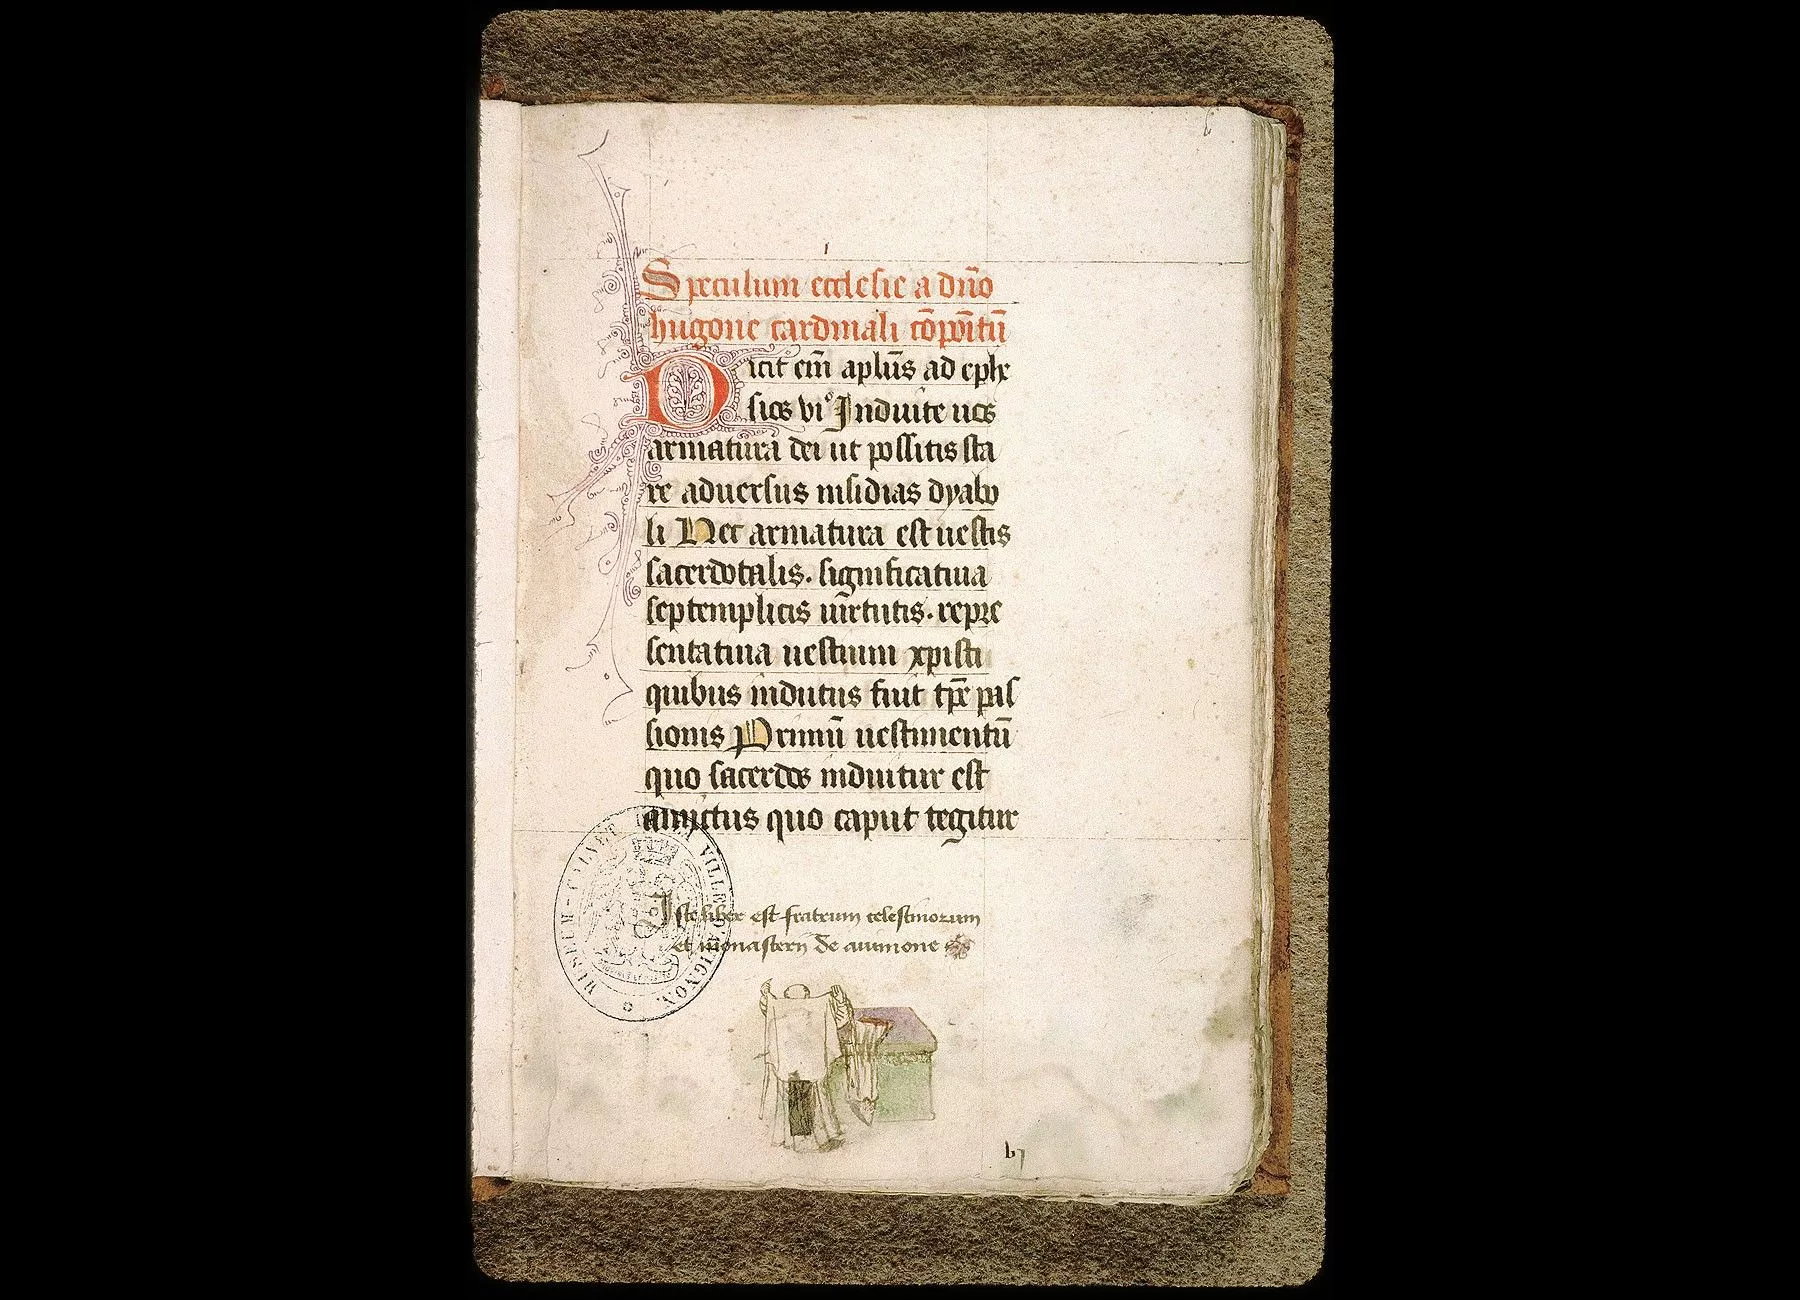 Speculum ecclesie a dn̄o
hugone cardinali cōpoītū
Dicit em̄ aplūs ad ephe
sios vi° Induite uos
armaturā dei ut possitis sta
re aduersus insidias dyabo
li Hec armatura est uestis
sacerdotalis. significatiua
septemplicis uirtutis. repre
sentatiua uestium xpisti
quibus indutus fuit tp̄e pas
sionis Primū uestimentū
quo sacerdos induitur est
amictus quo caput tegitur
Iste liber est fratrum celestinorum
et monasterij de auinione
MUSEUM-CALVET VILLE D'AVIGNON
b j